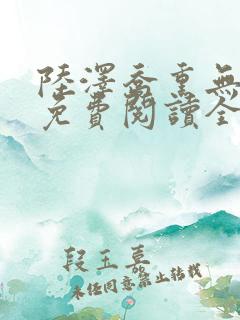 陸澤喬重無
免費閱讀全
段王募
未经同意禁止转载